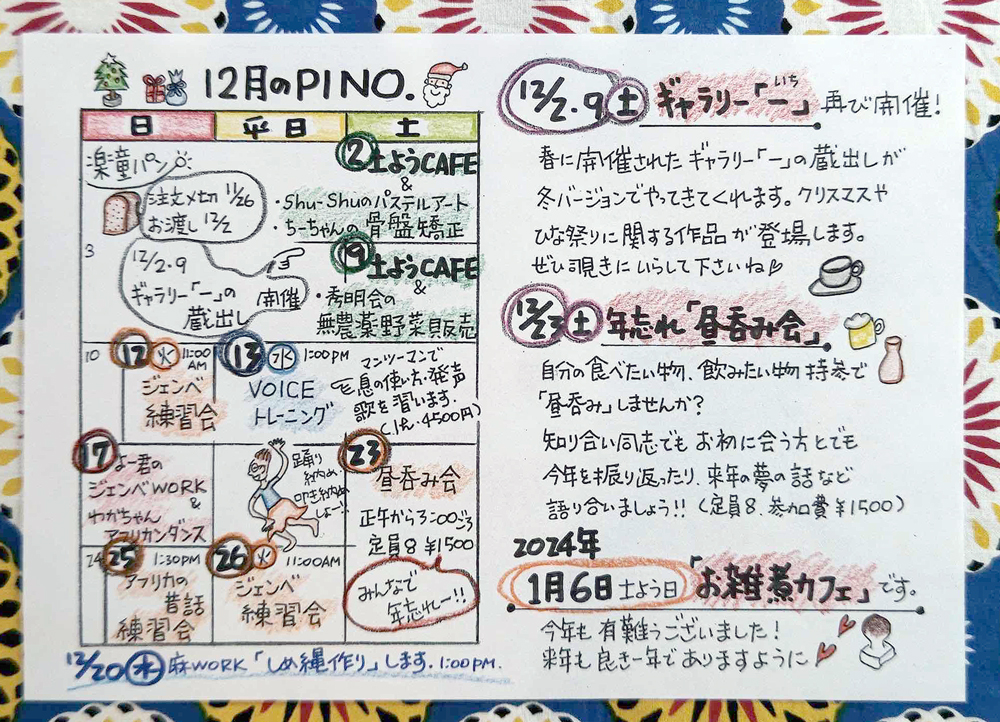 12月のPINO.
日 平日 土
楽童パン
注文〆切 11/26
お渡し 12/2
② 土ようCAFE
&
・Shu-Shuのパステルアート
・ちーちゃんの 骨盤矯正
3
12/2・9
ギャラリー「一」の
蔵出し 開催
⑨ 土ようCAFE
&
・秀明会の
無農薬野菜販売
10
⑫ 火 11:00 AM
ジェンベ
練習会
⑬ 水 1:00PM
VOICE
トレーニング
マンツーマンで
息の使い方・発声
歌を習います.
(1h.4500円)
⑰ よー君の
ジェンベWORK
&
わかちゃん
アフリカンダンス
踊り
納め
叩き納め
しよ〜
㉓
昼呑み会
正午から3:00ごろ
定員8 ¥1500
24
㉕ 1:30PM
アフリカの
昔話
練習会
㉖ 火 11:00AM
ジェンベ
練習会
みんなで
年忘れー!!
12/20 水 麻WORK「しめ縄作り」します. 1:00PM.
12/2.9 土 ギャラリー「一」再び開催!
いち
春に開催されたギャラリー「一」の蔵出しが
冬バージョンでやってきてくれます。クリスマスや
ひな祭りに関する作品が登場します。
ぜひ覗きにいらして下さいね♡
12/23 土 年忘れ「昼呑み会」
自分の食べたい物、飲みたい物持参で
「昼呑み」しませんか?
知り合い同志でも お初に会う方とでも
今年を振り返ったり、来年の夢の話など
語り合いましょう!! (定員8、参加費¥1500)
2024年
1月6日 土よう日「お雑煮カフェ」です。
今年も 有難うございました!
来年も良き一年でありますように